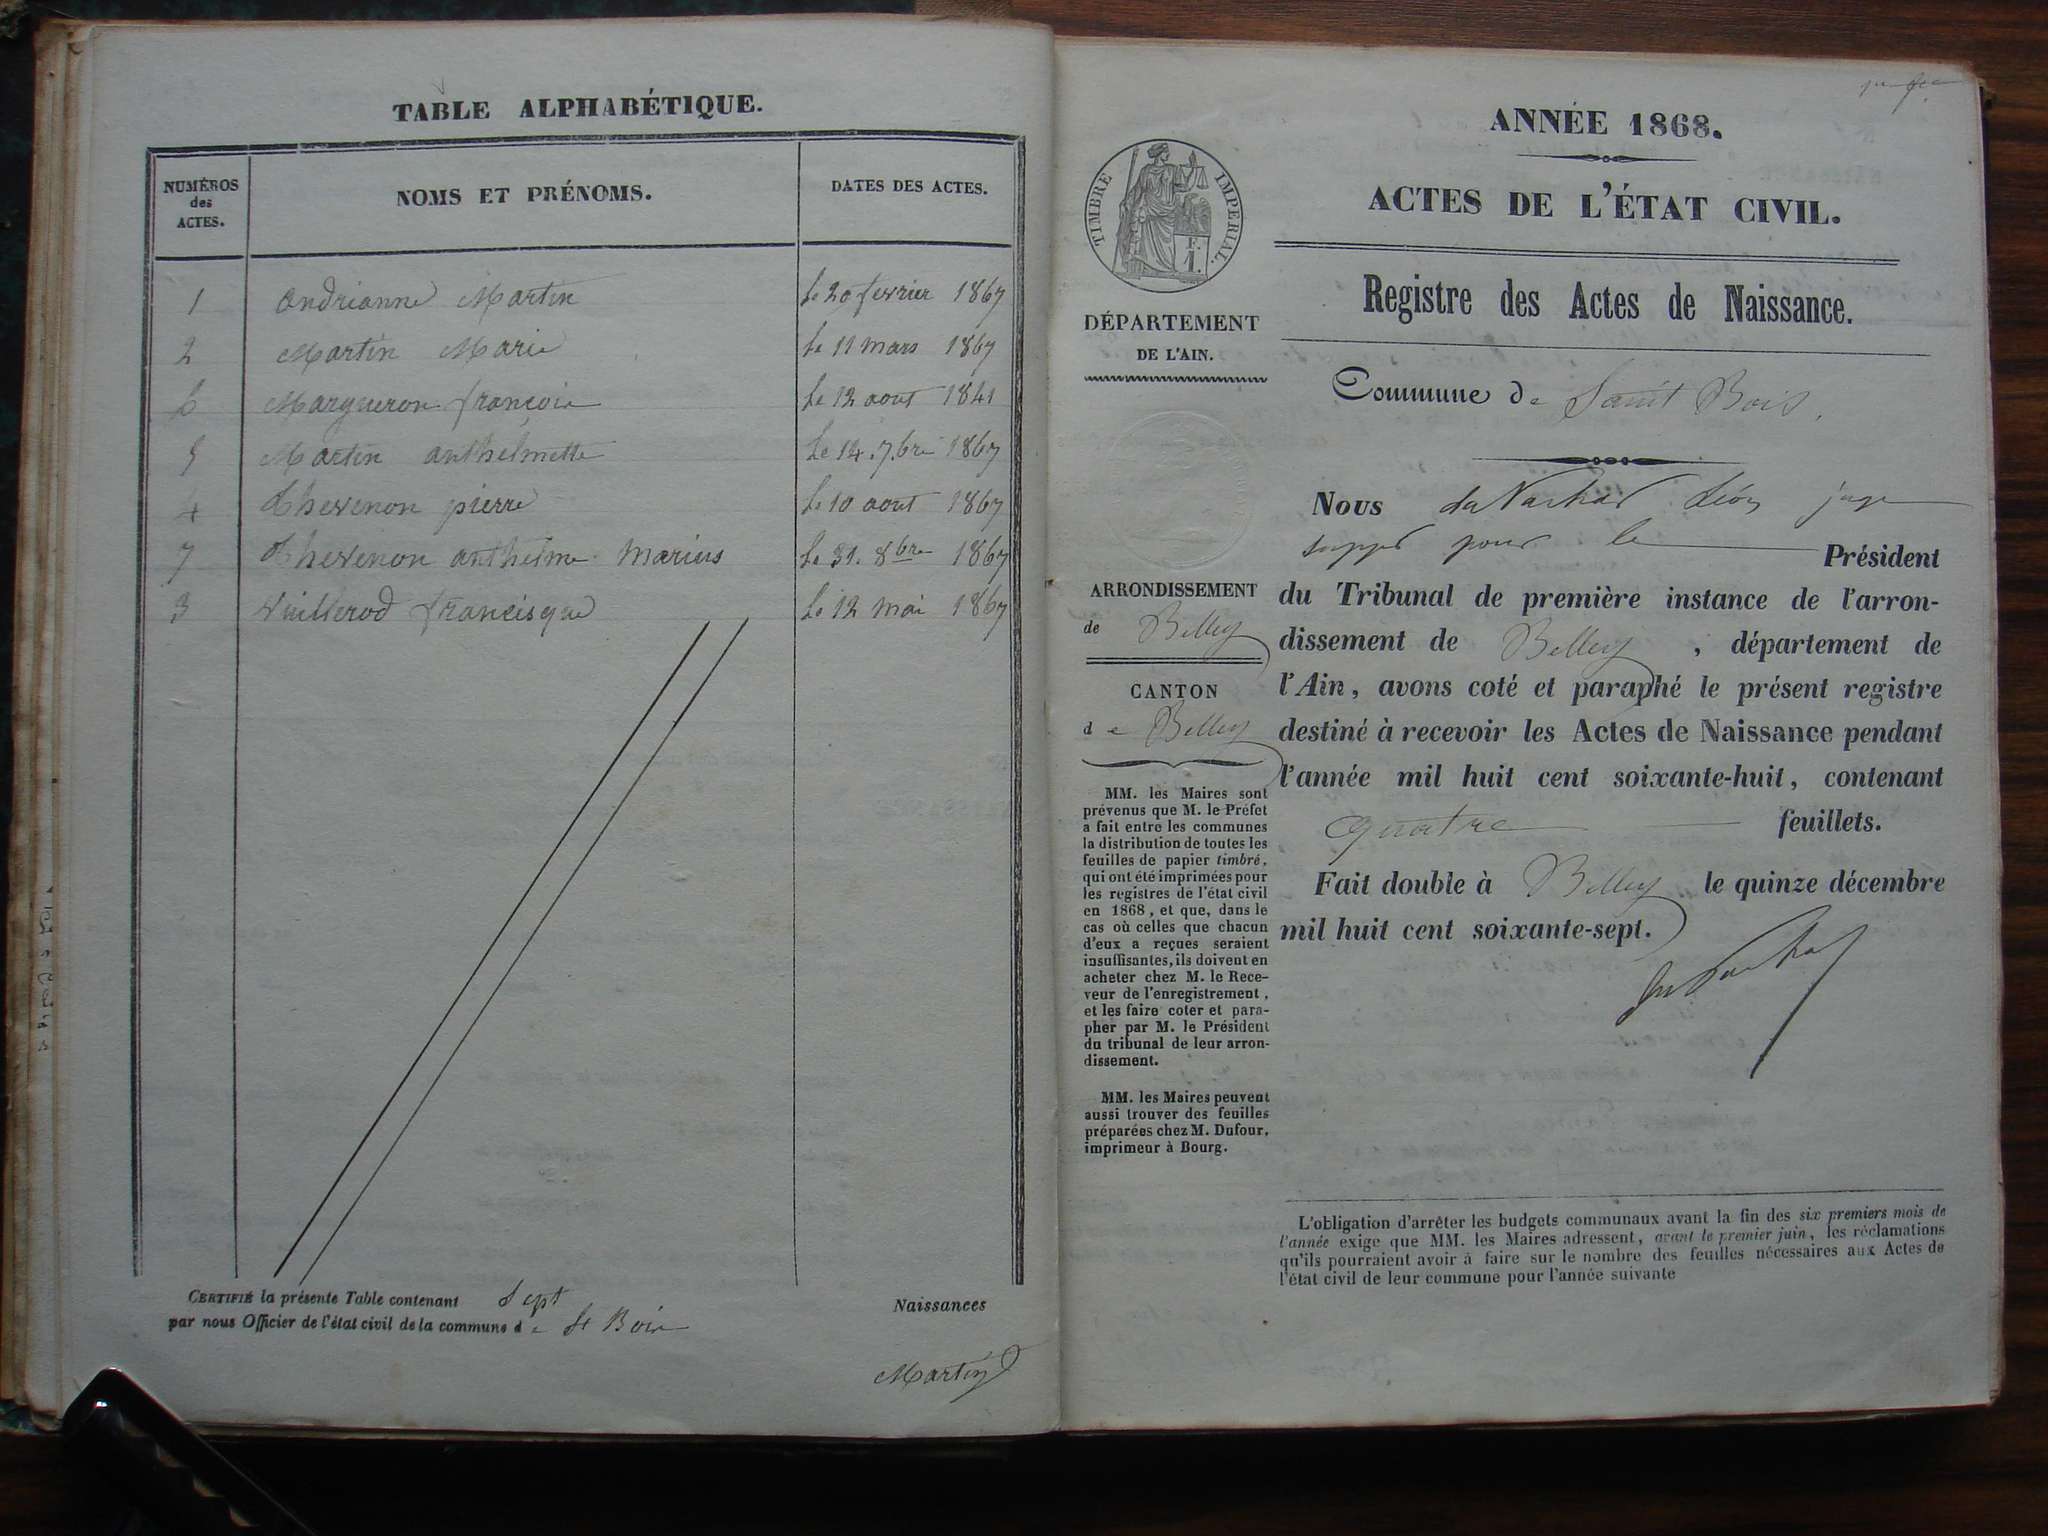 TABLE ALPHABÉTIQUE.
NUMÉROS des ACTES.
NOMS ET PRÉNOMS.
DATES DES ACTES.
1 Andrianne Martin Le 20 fevrier 1867
2 Martin Marie Le 11 mars 1867
6 Margueron françois Le 12 aout 1841
5 Martin anthelmette Le 14. 7.bre 1867
4 Thevenon pierre Le 10 aout 1867
7 Thevenon anthelme Marius Le 31. 8bre 1867
3 Vuillerod francisque Le 12 mai 1867
CERTIFIÉ la présente Table contenant Sept Naissances
par nous Officier de l'état civil de la commune de St Bois
Martin
ANNÉE 1868.
ACTES DE L'ÉTAT CIVIL.
Registre des Actes de Naissance.
TIMBRE IMPÉRIAL.
F.
1.
DÉPARTEMENT
DE L'AIN.
ARRONDISSEMENT
de Belley
CANTON
de Belley
MM. les Maires sont
prévenus que M. le Préfet
a fait entre les communes
la distribution de toutes les
feuilles de papier timbré,
qui ont été imprimées pour
les registres de l'état civil
en 1868, et que, dans le
cas où celles que chacun
d'eux a reçues seraient
insuffisantes, ils doivent en
acheter chez M. le Rece-
veur de l'enregistrement,
et les faire coter et para-
pher par M. le Président
du tribunal de leur arron-
dissement.
MM. les Maires peuvent
aussi trouver des feuilles
préparées chez M. Dufour,
imprimeur à Bourg.
Commune de Saint Bois.
Nous Léon juge
suppt pour le Président
du Tribunal de première instance de l'arron-
dissement de Belley, département de
l'Ain, avons coté et paraphé le présent registre
destiné à recevoir les Actes de Naissance pendant
l'année mil huit cent soixante-huit, contenant
quatre feuillets.
Fait double à Belley le quinze décembre
mil huit cent soixante-sept.
L'obligation d'arrêter les budgets communaux avant la fin des six premiers mois de
l'année exige que MM. les Maires adressent, avant le premier juin, les réclamations
qu'ils pourraient avoir à faire sur le nombre des feuilles nécessaires aux Actes de
l'état civil de leur commune pour l'année suivante